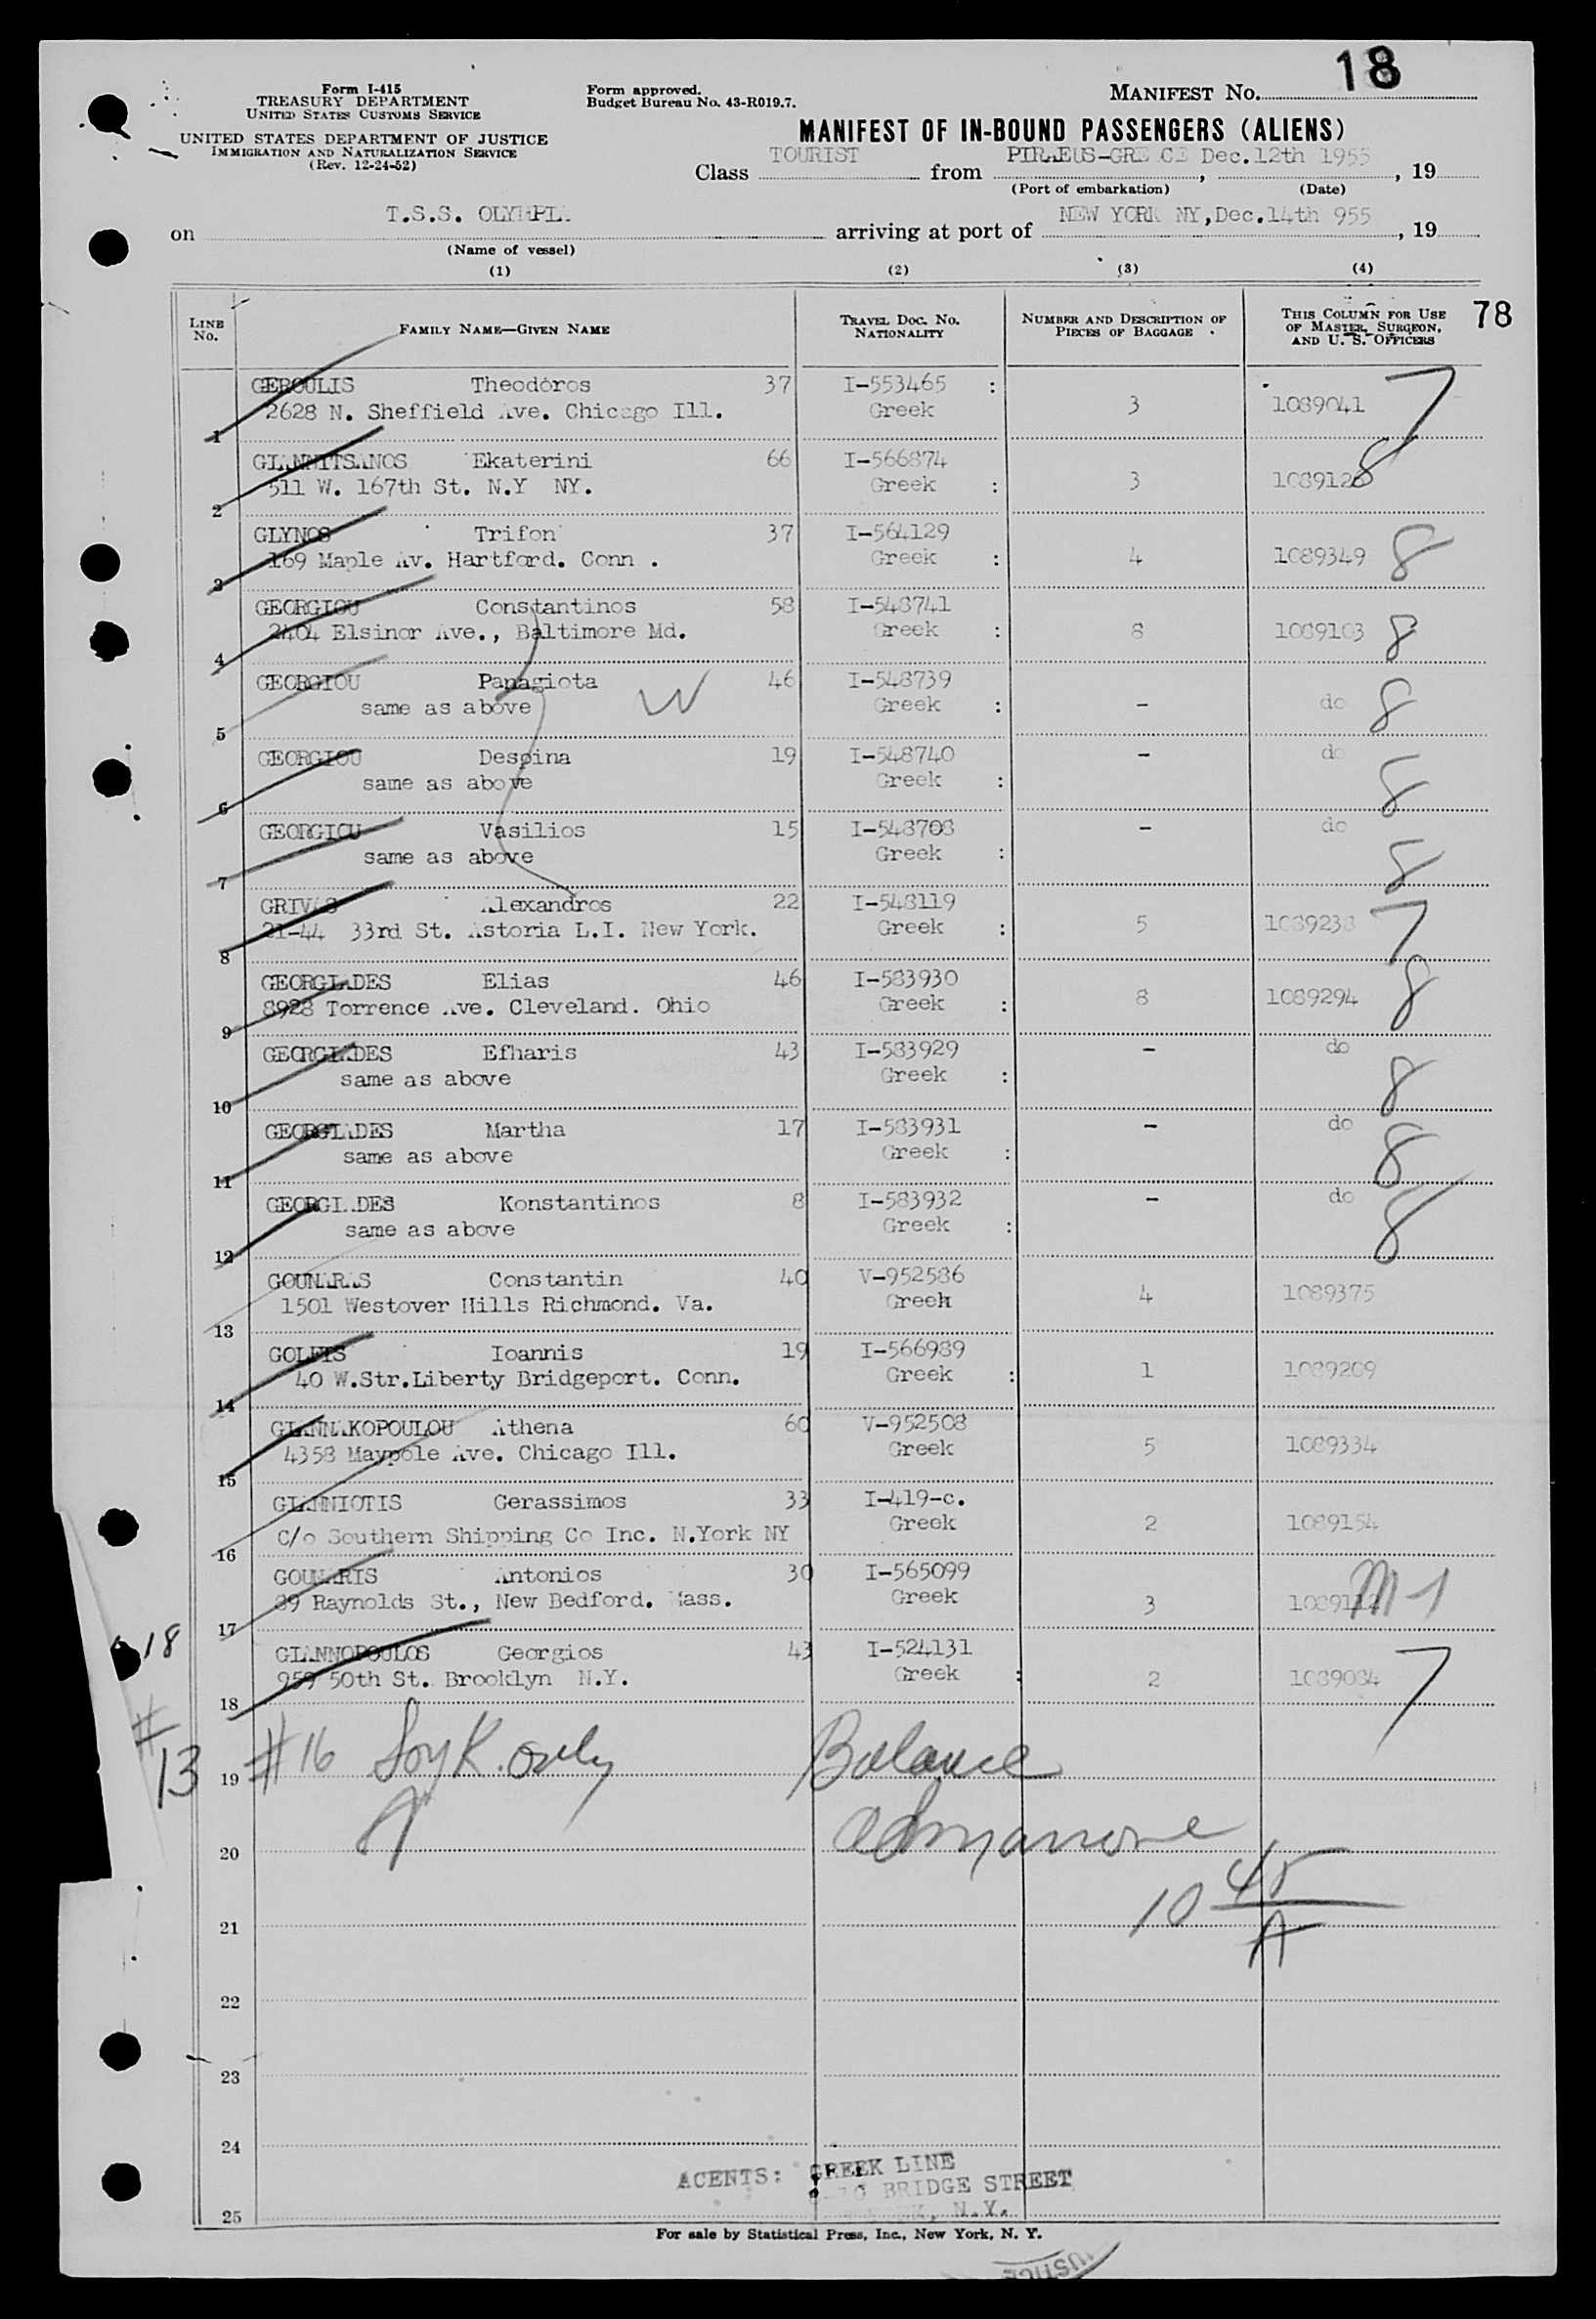 18
Form I-415
TREASURY DEPARTMENT
UNITED STATES CUSTOMS SERVICE
UNITED STATES DEPARTMENT OF JUSTICE
IMMIGRATION AND NATURALIZATION SERVICE
(Rev. 12-24-52)
Form approved.
Budget Bureau No. 43-R019.7.
MANIFEST No.
MANIFEST OF IN-BOUND PASSENGERS (ALIENS)
Class TOURIST from PIRAEUS-GRE CE Dec.12th 1955, 19
(Port of embarkation) (Date)
on T.S.S. OLYMPI arriving at port of NEW YORK NY,Dec.14th 955, 19
(Name of vessel)
(1) (2) (3) (4)
LINE No. FAMILY NAME—GIVEN NAME TRAVEL DOC. NO. NATIONALITY NUMBER AND DESCRIPTION OF PIECES OF BAGGAGE THIS COLUMN FOR USE OF MASTER, SURGEON, AND U. S. OFFICERS 78
GEROULIS Theodoros 37 I-553465 :
2628 N. Sheffield Ave. Chicago Ill. Greek 3 1089041 7
1
GIANNITSANOS Ekaterini 66 I-566874
511 W. 167th St. N.Y NY. Greek : 3 108912 8
2
GLYNOS Trifon 37 I-564129
169 Maple Av. Hartford. Conn . Greek : 4 1089349 8
3
GEORGIOU Constantinos 58 I-548741
2404 Elsinor Ave., Baltimore Md. Greek : 8 1089103 8
4
GEORGIOU Panagiota W 46 I-548739
same as above Greek : - do 8
5
GEORGIOU Despina 19 I-548740 - do
same as above Greek : 8
6
GEORGIOU Vasilios 15 I-548708 - do
same as above Greek : 8
7
GRIVAS Alexandros 22 I-548119
21-44 33rd St. Astoria L.I. New York. Greek : 5 1089238 7
8
GEORGIADES Elias 46 I-583930
8928 Torrence Ave. Cleveland. Ohio Greek : 8 1089294 8
9
GEORGIADES Efharis 43 I-583929 - do
same as above Greek : 8
10
GEORGIADES Martha 17 I-583931 - do
same as above Greek : 8
11
GEORGI DES Konstantinos 8 I-583932 - do
same as above Greek : 8
12
GOUNARAS Constantin 40 V-952586
1501 Westover Hills Richmond. Va. Greek 4 1089375
13
GOLFIS Ioannis 19 I-566989
40 W.Str.Liberty Bridgeport. Conn. Greek : 1 1089209
14
GIANNAKOPOULOU Athena 60 V-952508
4358 Maypole Ave. Chicago Ill. Greek 5 1089334
15
GIANNIOTIS Gerassimos 33 I-419-c.
C/o Southern Shipping Co Inc. N.York NY Greek 2 1089154
16
GOUNARIS Antonios 30 I-565099
89 Raynolds St., New Bedford. Mass. Greek 3 M-1
17
18
GIANNOPOULOS Georgios 43 I-524131
959 50th St. Brooklyn N.Y. Greek : 2 1089084 7
18
#13
19 #16 only Balance
20
10 45
A
21
22
23
24
AGENTS: GREEK LINE
BRIDGE STREET
N.Y.
25
For sale by Statistical Press, Inc., New York, N. Y.